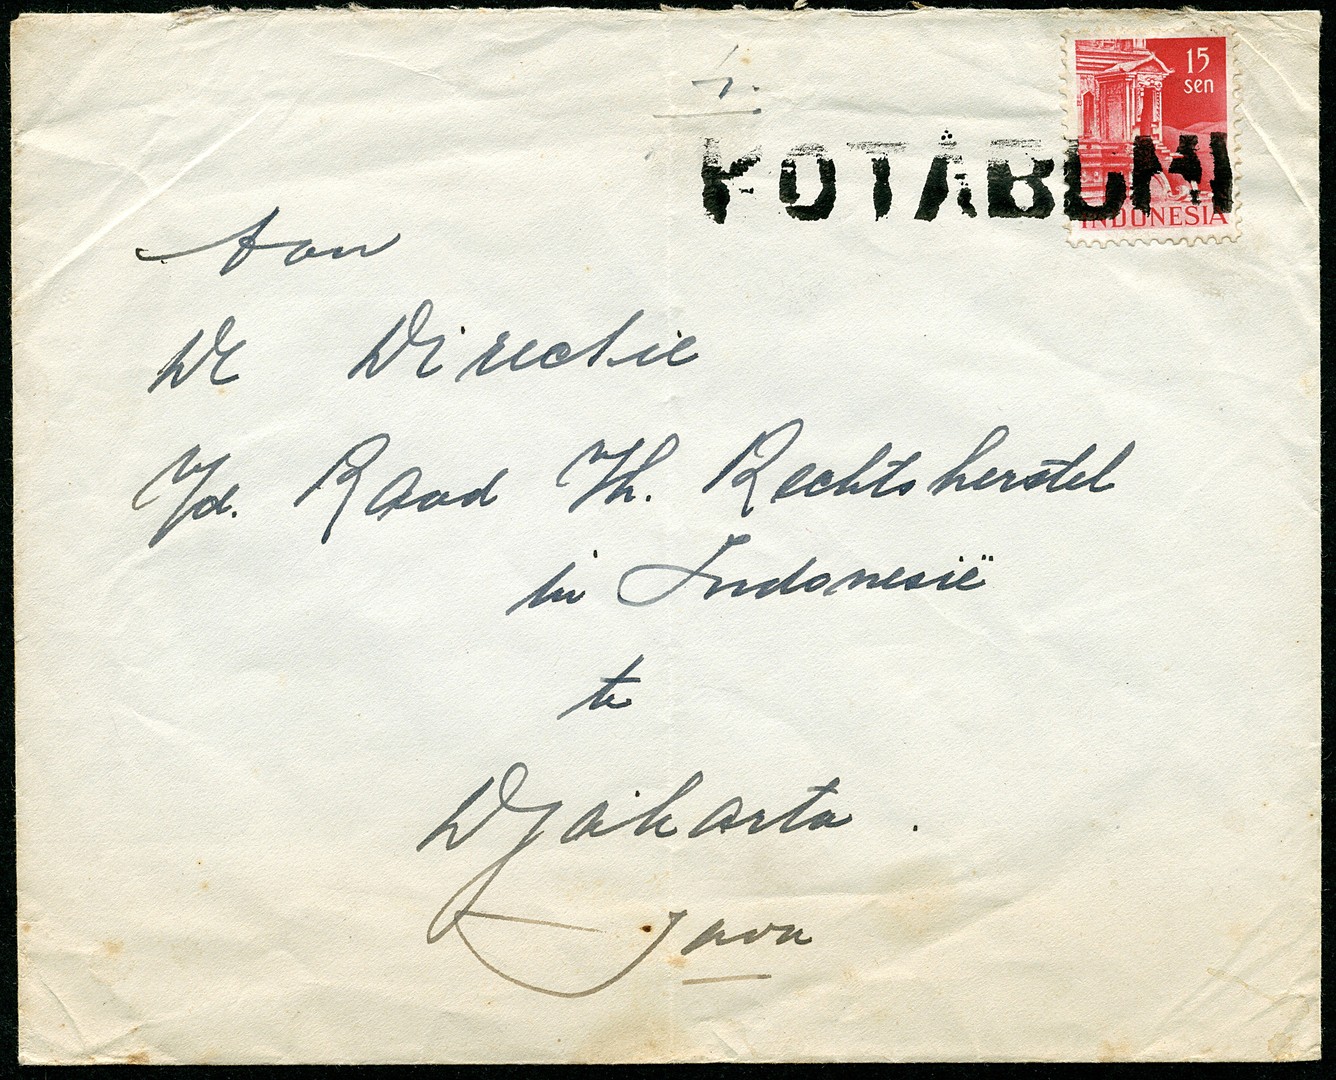 15
sen
KOTABUMI
INDONESIA
Aan
De Directie
V/d. Raad Th. Rechtsherstel
in Indonesië
te
Djakarta.
Java